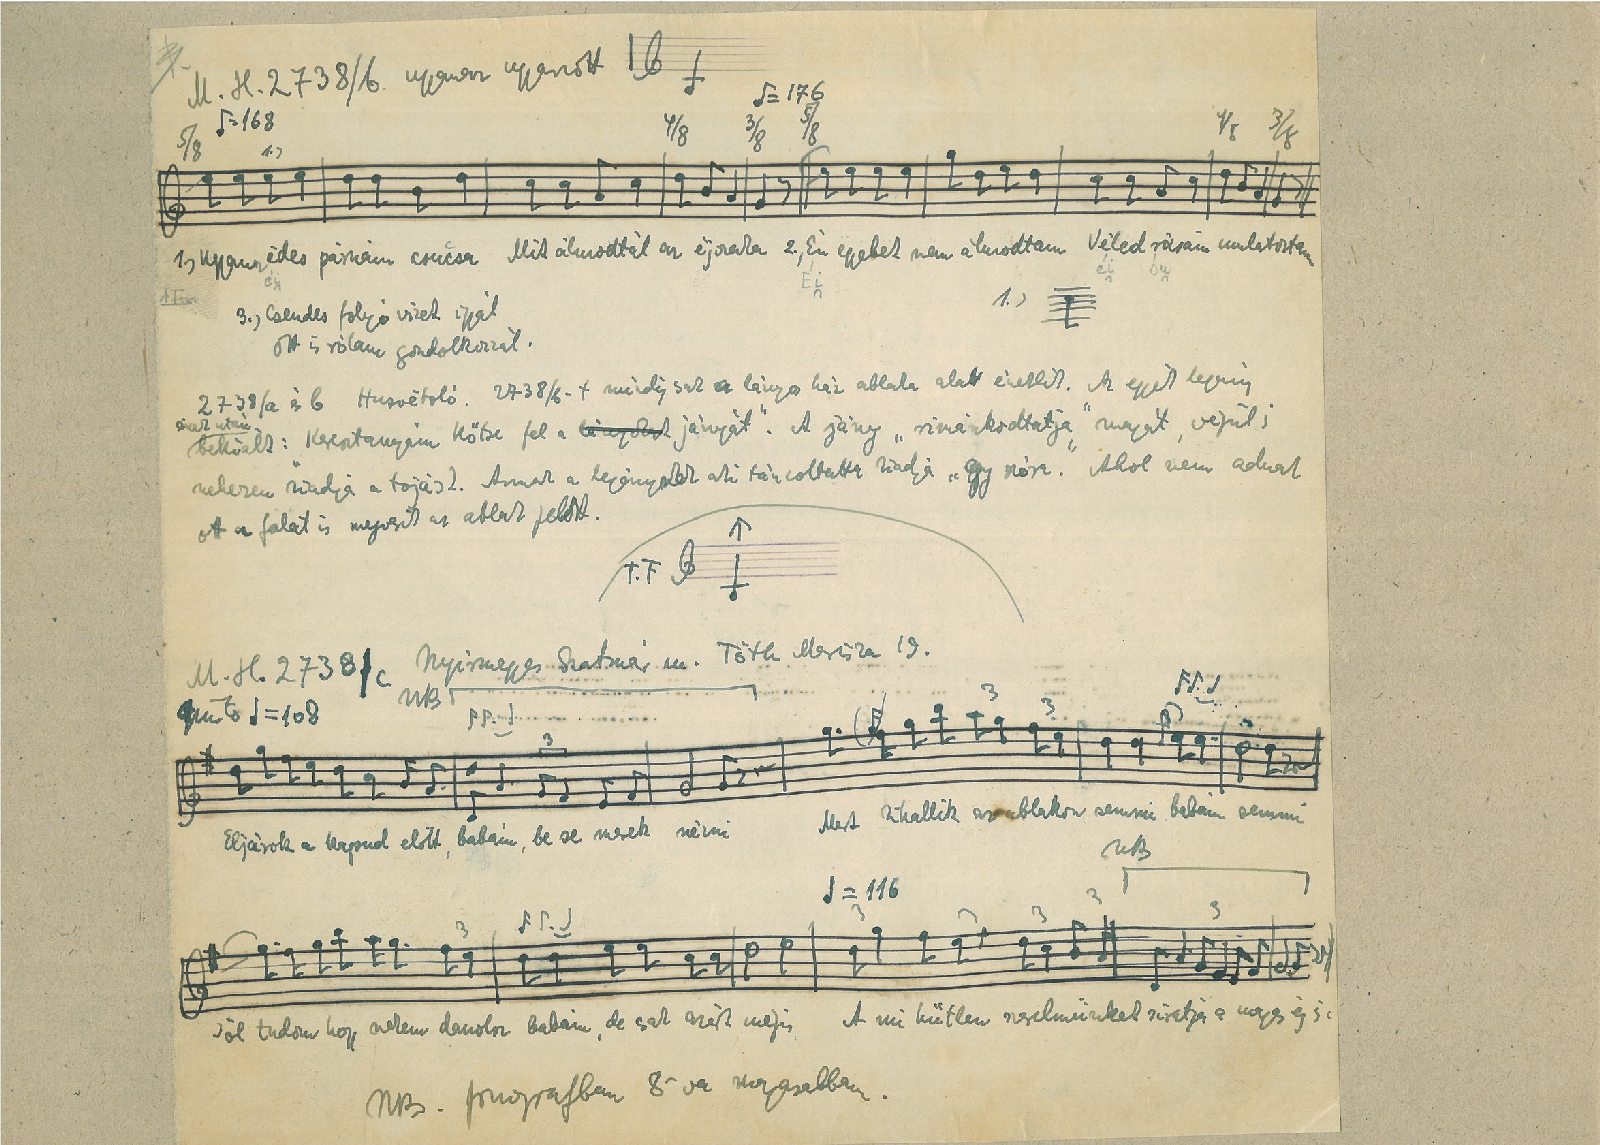 M.H. 2738/b. ugyanaz ugyanott
♪=168
♪=176
5/8 4/8 3/8 5/8 4/8 3/8
1.)
1., Ugyan édes párnám csücse Mit álmodtál az éjszaka 2., Én egyebet nem álmodtam Véled rózsám mulatoztam
3., Csendes folyó vizek ígyál
Ott is rólam gondolkozzál.
1.)
2738/a és b Husvétoló. 2738/b-t mindig csak a lányos ház ablaka alatt éneklik. Az egyik legény
bekiált: Keresztanyám kőtse fel a jányát". A jány „ magát, végül is
nehezen kiadja a tojást. Annak a legénynek aki táncoltatta kiadja „ Ahol nem adnak
ott a falat is az ablak felett.
T.F
M.H. 2738/c Nyírmegyes Szatmár m. Tóth Mariska 19.
NB
♩=108
3 3 3
Eljárok a kapud előtt, babám, be se merek nézni Mert kihallik az ablakon semmi babám semmi
NB
♩=116
3 3 3 3 3
Jól tudom hogy nekem danolsz babám, de csak azért mégis A mi hűtlen szerelmünket siratja a magas ég is
NB. fonografban 8-va magasabban.